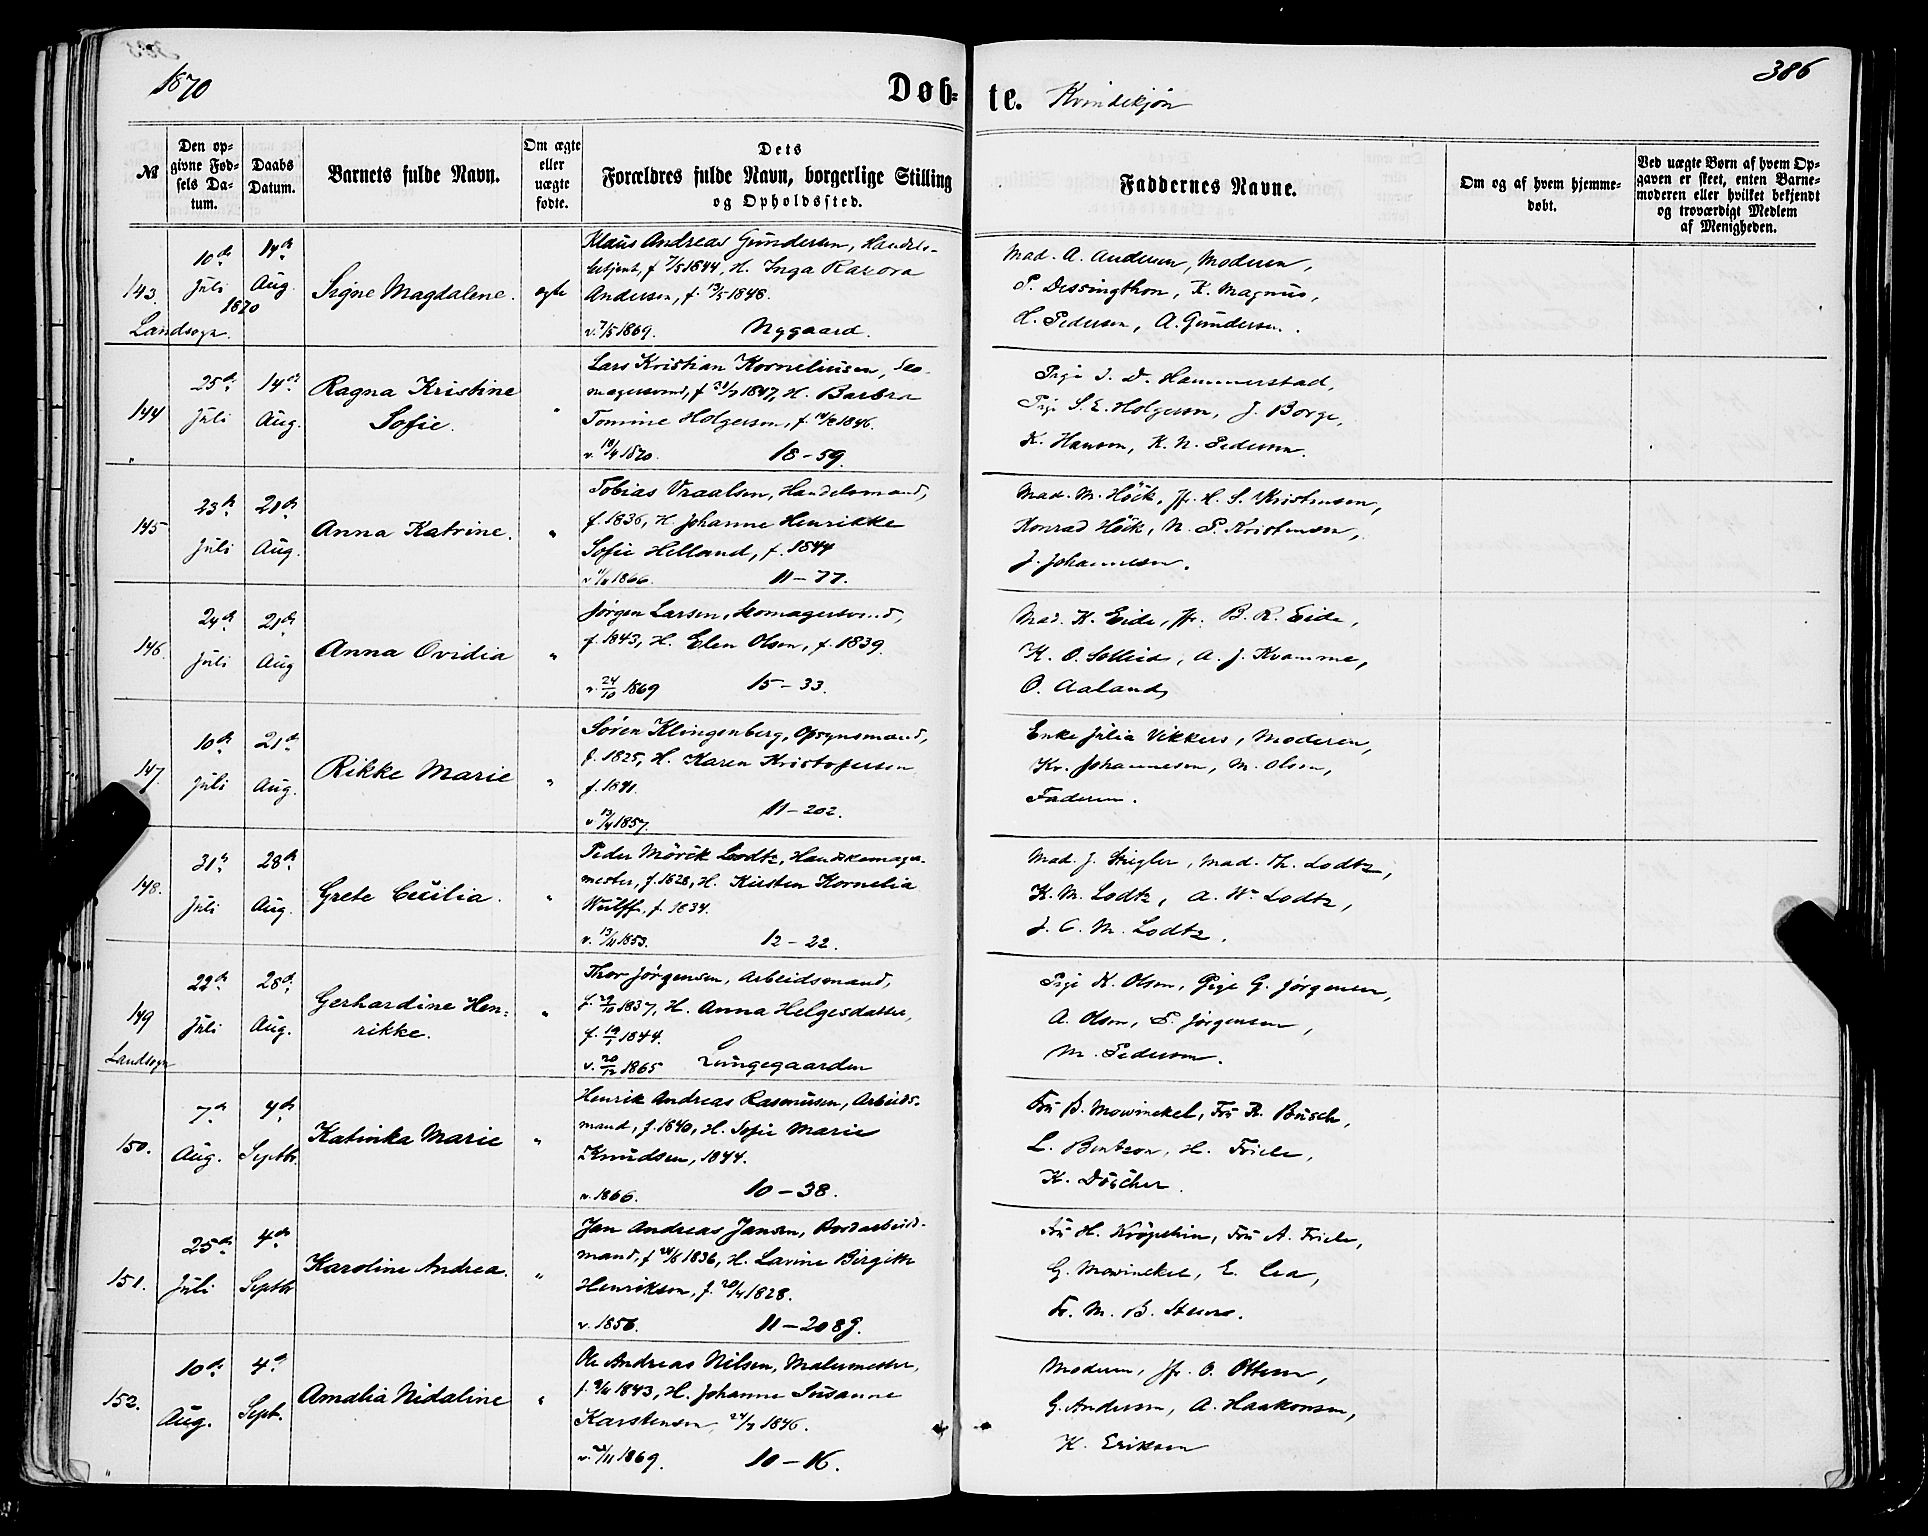 1870
Døb-
te.
Kvindekjøn
386
№
Den op-
givne Fød-
sels Da-
tum.
Daabs
Datum.
Barnets fulde Navn.
Om ægte
eller
uægte
fødte.
Dets
Forældres fulde Navn, borgerlige Stilling
og Opholdssted.
Faddernes Navne.
Om og af hvem hjemme-
døbt.
Ved uægte Børn af hvem Op-
gaven er skeet, enten Barne-
moderen eller hvilket bekjendt
og troværdigt Medlem
af Menigheden.
143.
Landsogn.
10de
Juli
1870
14de
Aug.
Signe Magdalene.
ægte
Klaus Andreas Gundersen, Handels-
betjent, f 7/5 1844, H. Inga Razora
Andersen, f. 13/5 1848.
v. 7/5 1869. Nygaard.
Mad. A. Andersen, Moderen,
P. Dessingthon, K. Magnus,
H. Pedersen, A. Gundersen.
144
25de
Juli
14de
Aug.
Ragna Kristine
Sofie.
"
Lars Kristian Korneliusen, Sko-
magersvend, f 31/7 1847, H. Barbra
Tomine Holgersen, f. 1846.
v. 18/4 1870. 18-59.
Pige I. D. Hammerstad,
Pige S. E. Holgersen, J. Borge,
K. Hansen, K. N. Pedersen.
145
23de
Juli
21de
Aug.
Anna Katrine.
"
Tobias Vraalsen, Handelsmand,
f. 1836, H. Johanne Henrikke
Sofie Helland, f. 1844
1866. 11-77.
Mad. M. Höik, Jfr. H. S. Kristensen,
Konrad Höik, N. P. Kristensen,
J. Johannesen.
146.
24de
Juli
21de
Aug
Anna Ovidia
"
Jørgen Larsen, Skomagersvend,
f. 1843, H. Elen Olsen, f. 1839.
v. 24/10 1869 15-33.
Mad. K. Eide, Jfr. B. R. Eide,
K. O. Sollied, A. J. Kvamme,
O. Aaland,
147.
10de
Juli
21de
Aug.
Rikke Marie
"
Søren Klingenberg, Opsynsmand,
f. 1825, H. Karen Kristofersen
f. 1841.
v 13/4 1857. 11-202.
Enke Julia Vikkers, Moderen,
Kr. Johannesen, M. Olsen,
Faderen.
148.
31te
Juli
28de
Aug.
Grete Cecilia.
"
Peder Mørck Lodtz, Handskemager-
mester, f. 1828, H. Kirsten Kornelia
Wulff, f. 1834.
v. 13/11 1853. 12-22.
Mad. J. Stregler, Mad. Th. Lodtz,
K. M. Lodtz, A. W. Lodtz,
J. C. M. Lodtz.
149
Landsogn
22de
Juli
28de
Aug.
Gerhardine Hen-
rikke.
"
Thor Jørgensen, Arbeidsmand,
f. 1837, H. Anna Helgesdatter,
f. 1844.
v. 20/12 1865 Lungegaarden
Pige K. Olsen, Pige G. Jørgensen,
A. Olsen, P. Jørgensen,
M. Pedersen.
150.
7de
Aug.
4de
Septbr.
Katinka Marie
"
Henrik Andreas Rasmussen, Arbeids-
mand, f. 1840, H. Sofie Marie
Knudsen, 1844.
v. 1866. 10-38.
Fru B. Mowinckel, Fru K. Busch,
L. Bentzon, H. Friele,
K. Döscher.
151.
25de
Juli
4de
Septbr
Karoline Andrea.
"
Jan Andreas Jansen, Bordarbeids-
mand, f 1836, H. Lavine Birgitte
Henriksen, f. 20/4 1828.
v. 1856. 11-208 9.
Fru H. Kröpelien, Fru A. Friele,
G. Mowinckel, E. Lea,
Fr. M. B. Steens.
152.
10de
Aug.
4de
Sept.
Amalia Nidaline
"
Ole Andreas Nilsen, Malermester,
f. 1843, H. Johanne Susanne
Karstensen, 24/7 1846.
1869. 10-16.
Moderen, Jfr. O. Ottesen,
G. Andersen, A. Haakonsen,
K. Eriksen